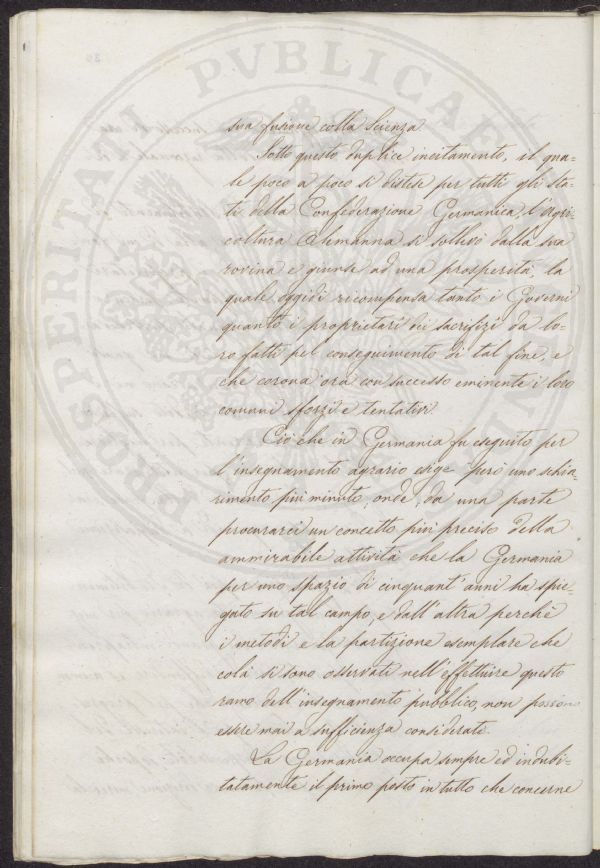 sua fusione colla scienza.
Sotto questo duplice incitamento, il qua-
le poco a poco si distese per tutti gli sta-
ti della Confederazione Germanica l'agri-
coltura Alemanna si sollevò dalla sua
rovina e giunse ad una prosperità, la
quale oggidì ricompensa tanto i Governi
quanto i proprietarî dei sacrifizi da lo-
ro fatti pel conseguimento di tal fine, e
che corona ora con successo eminente i loro
comuni sforzi e tentativi.
Ciò che in Germania fu eseguito per
l'insegnamento agrario esige però uno schia-
rimento più minuto, onde, da una parte
procurarci un concetto più preciso della
ammirabile attività che la Germania
per uno spazio di cinquant'anni ha spie-
gato su tal campo, e dall'altra perchè
i metodi e la partizione esemplare che
colà si sono osservati nell'effettuire questo
ramo dell'insegnamento pubblico, non possono
essere mai a sufficienza considerate.
La Germania occupa sempre ed indubi-
tatamente il primo posto in tutto che concerne
PVBLICAE
PROSPERITATI